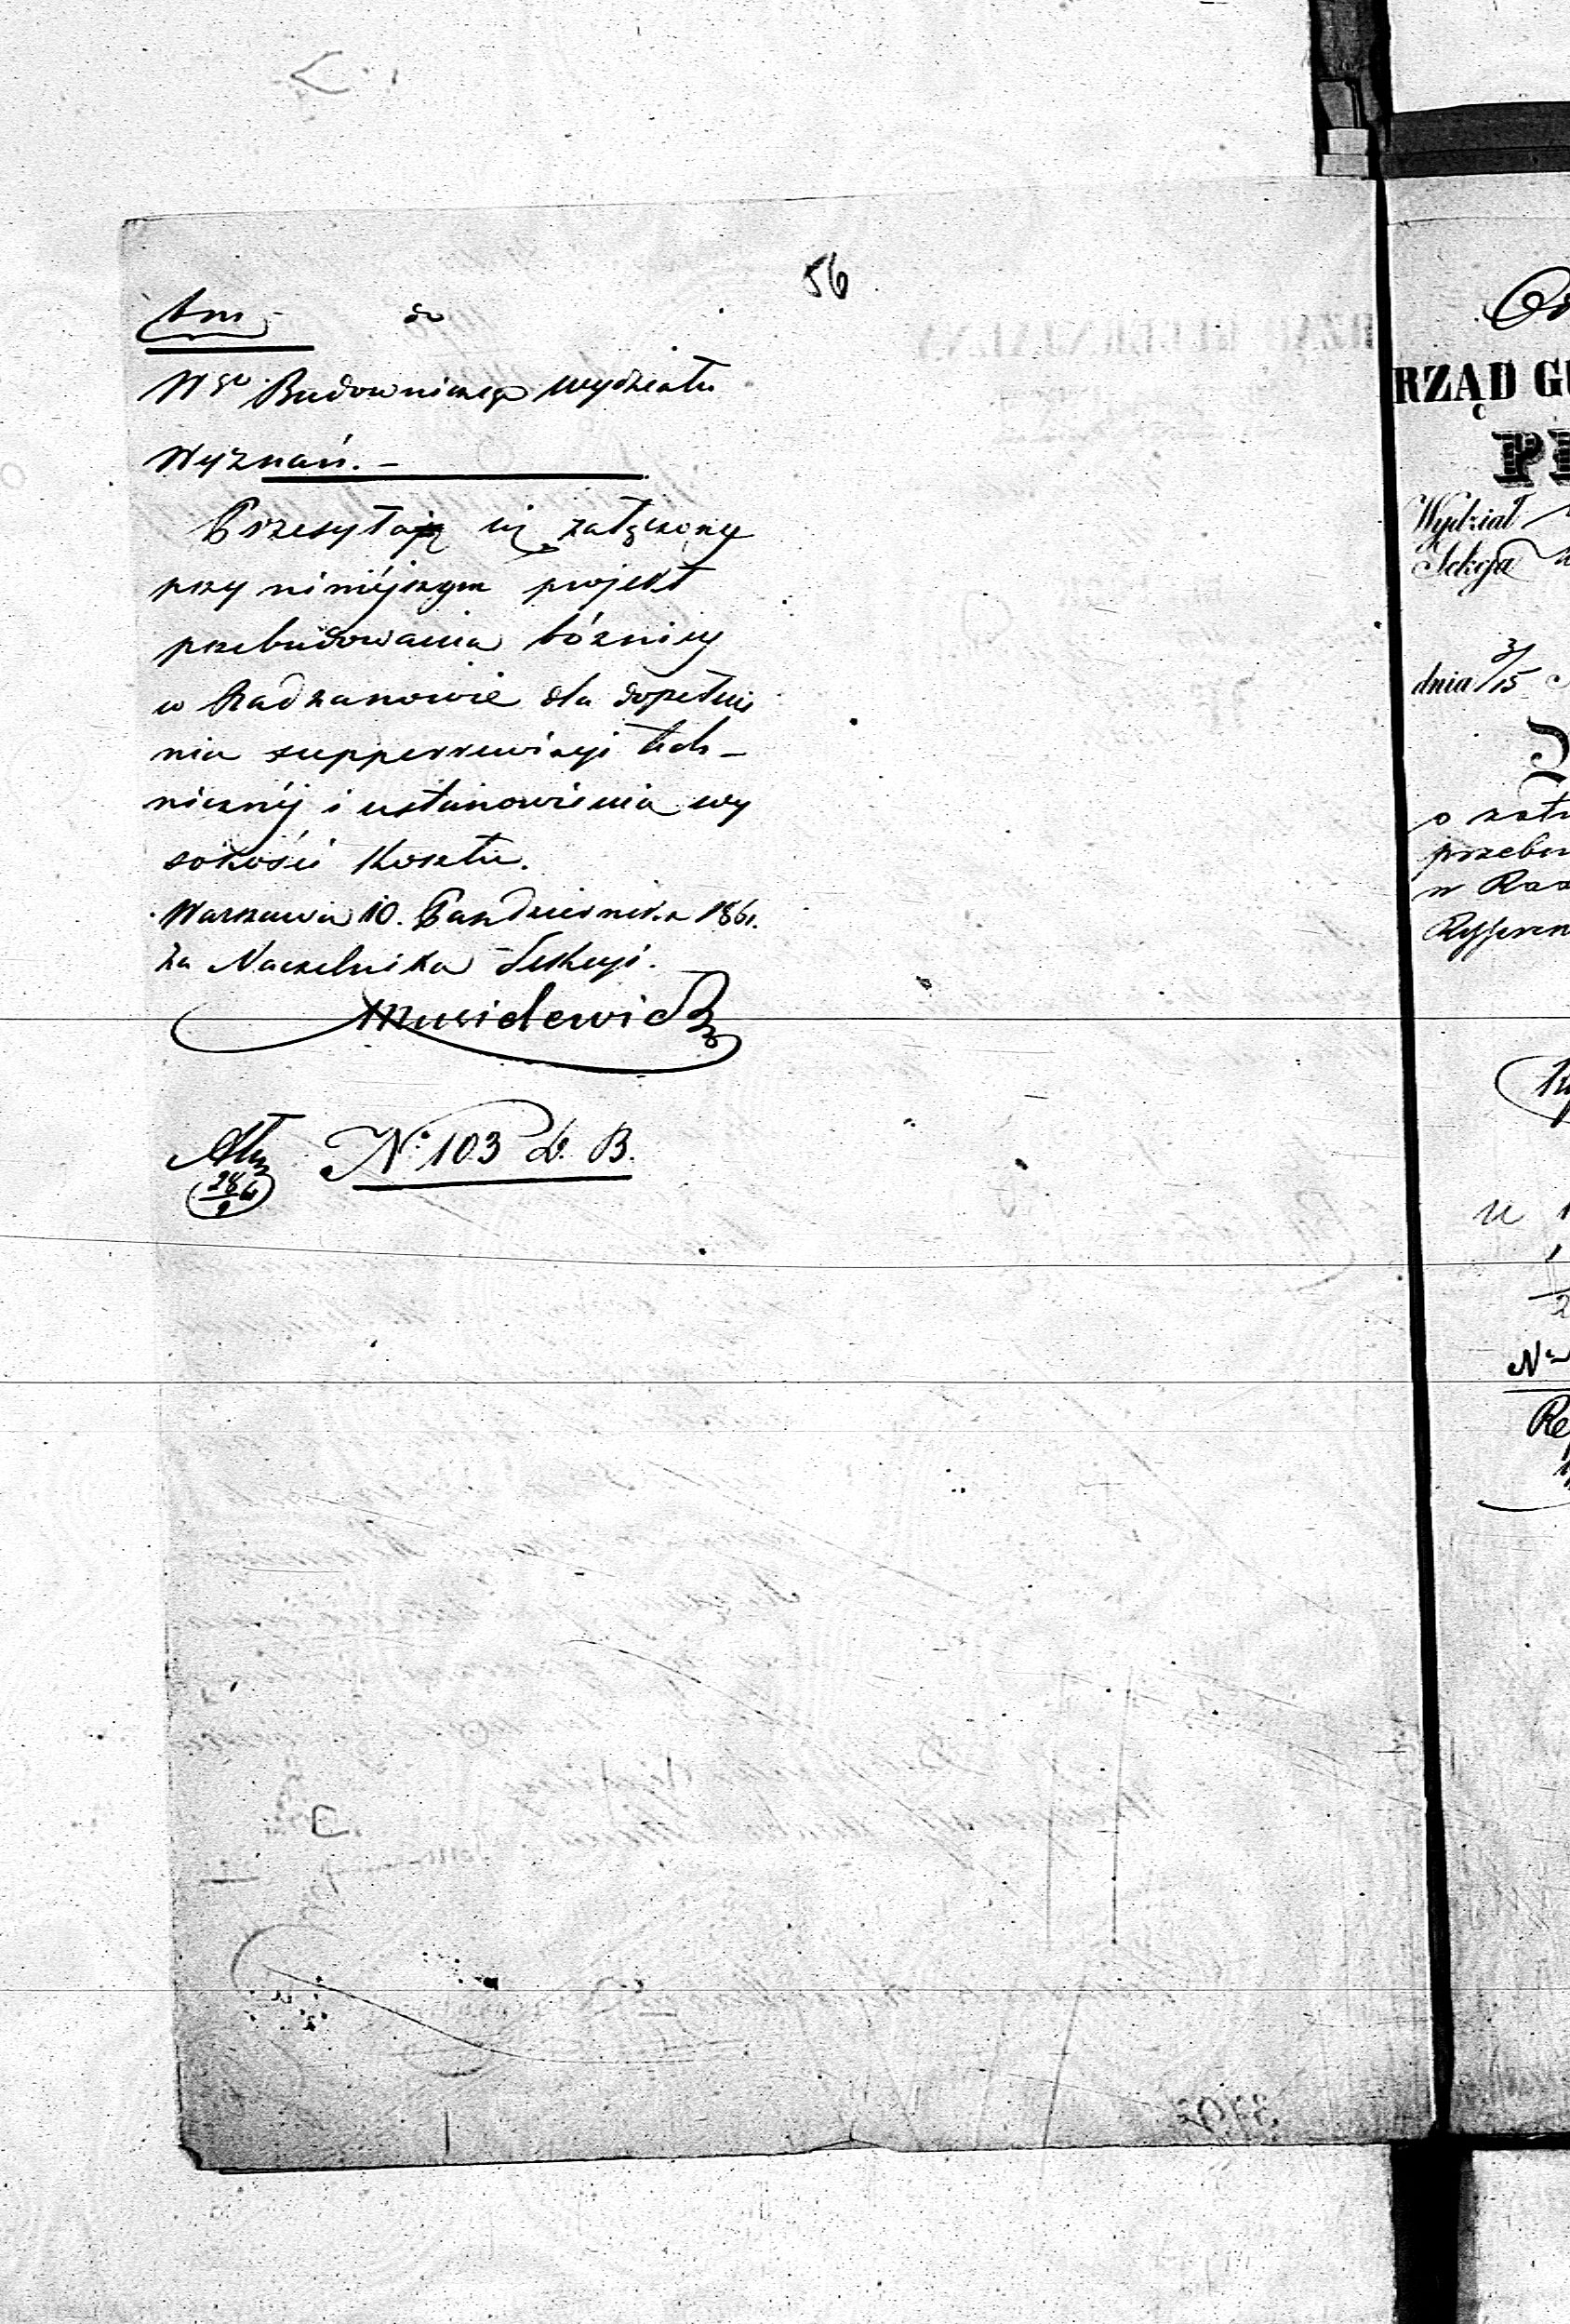 56
do
Wgo Budowniczego Wydziału
Wyznań. –
Przesyłając załączony
przy niniéjszym projekt
przebudowania bóżnicy
w Radzanowie dla dopełnie
nia supperrewizyi tech–
nicznéj i ustanowienia wy
sokości kosztu.
Warszawa 10. Października 1861.
Za Naczelnika Sekcyi.
No 103 L. B.
28
9
RZĄD GU
Wydział
Sekcja
dnia 3/15
przebu
w Rad